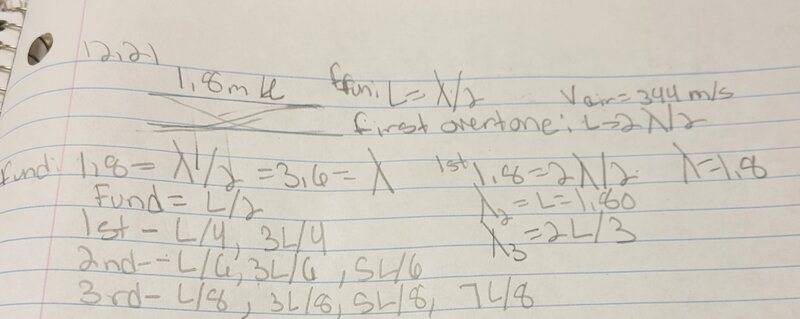 12.21
1.8m
fun: L = λ/2
Vair = 344 m/s
first overtone: L = 2λ/2
fund: 1.8 = λ1/2 = 3.6 = λ
1st 1.8 = 2λ/2 λ = 1.8
Fund = L/2
λ2 = L = 1.80
1st - L/4, 3L/4
λ3 = 2L/3
2nd - L/6, 3L/6, 5L/6
3rd - L/8, 3L/8, 5L/8, 7L/8